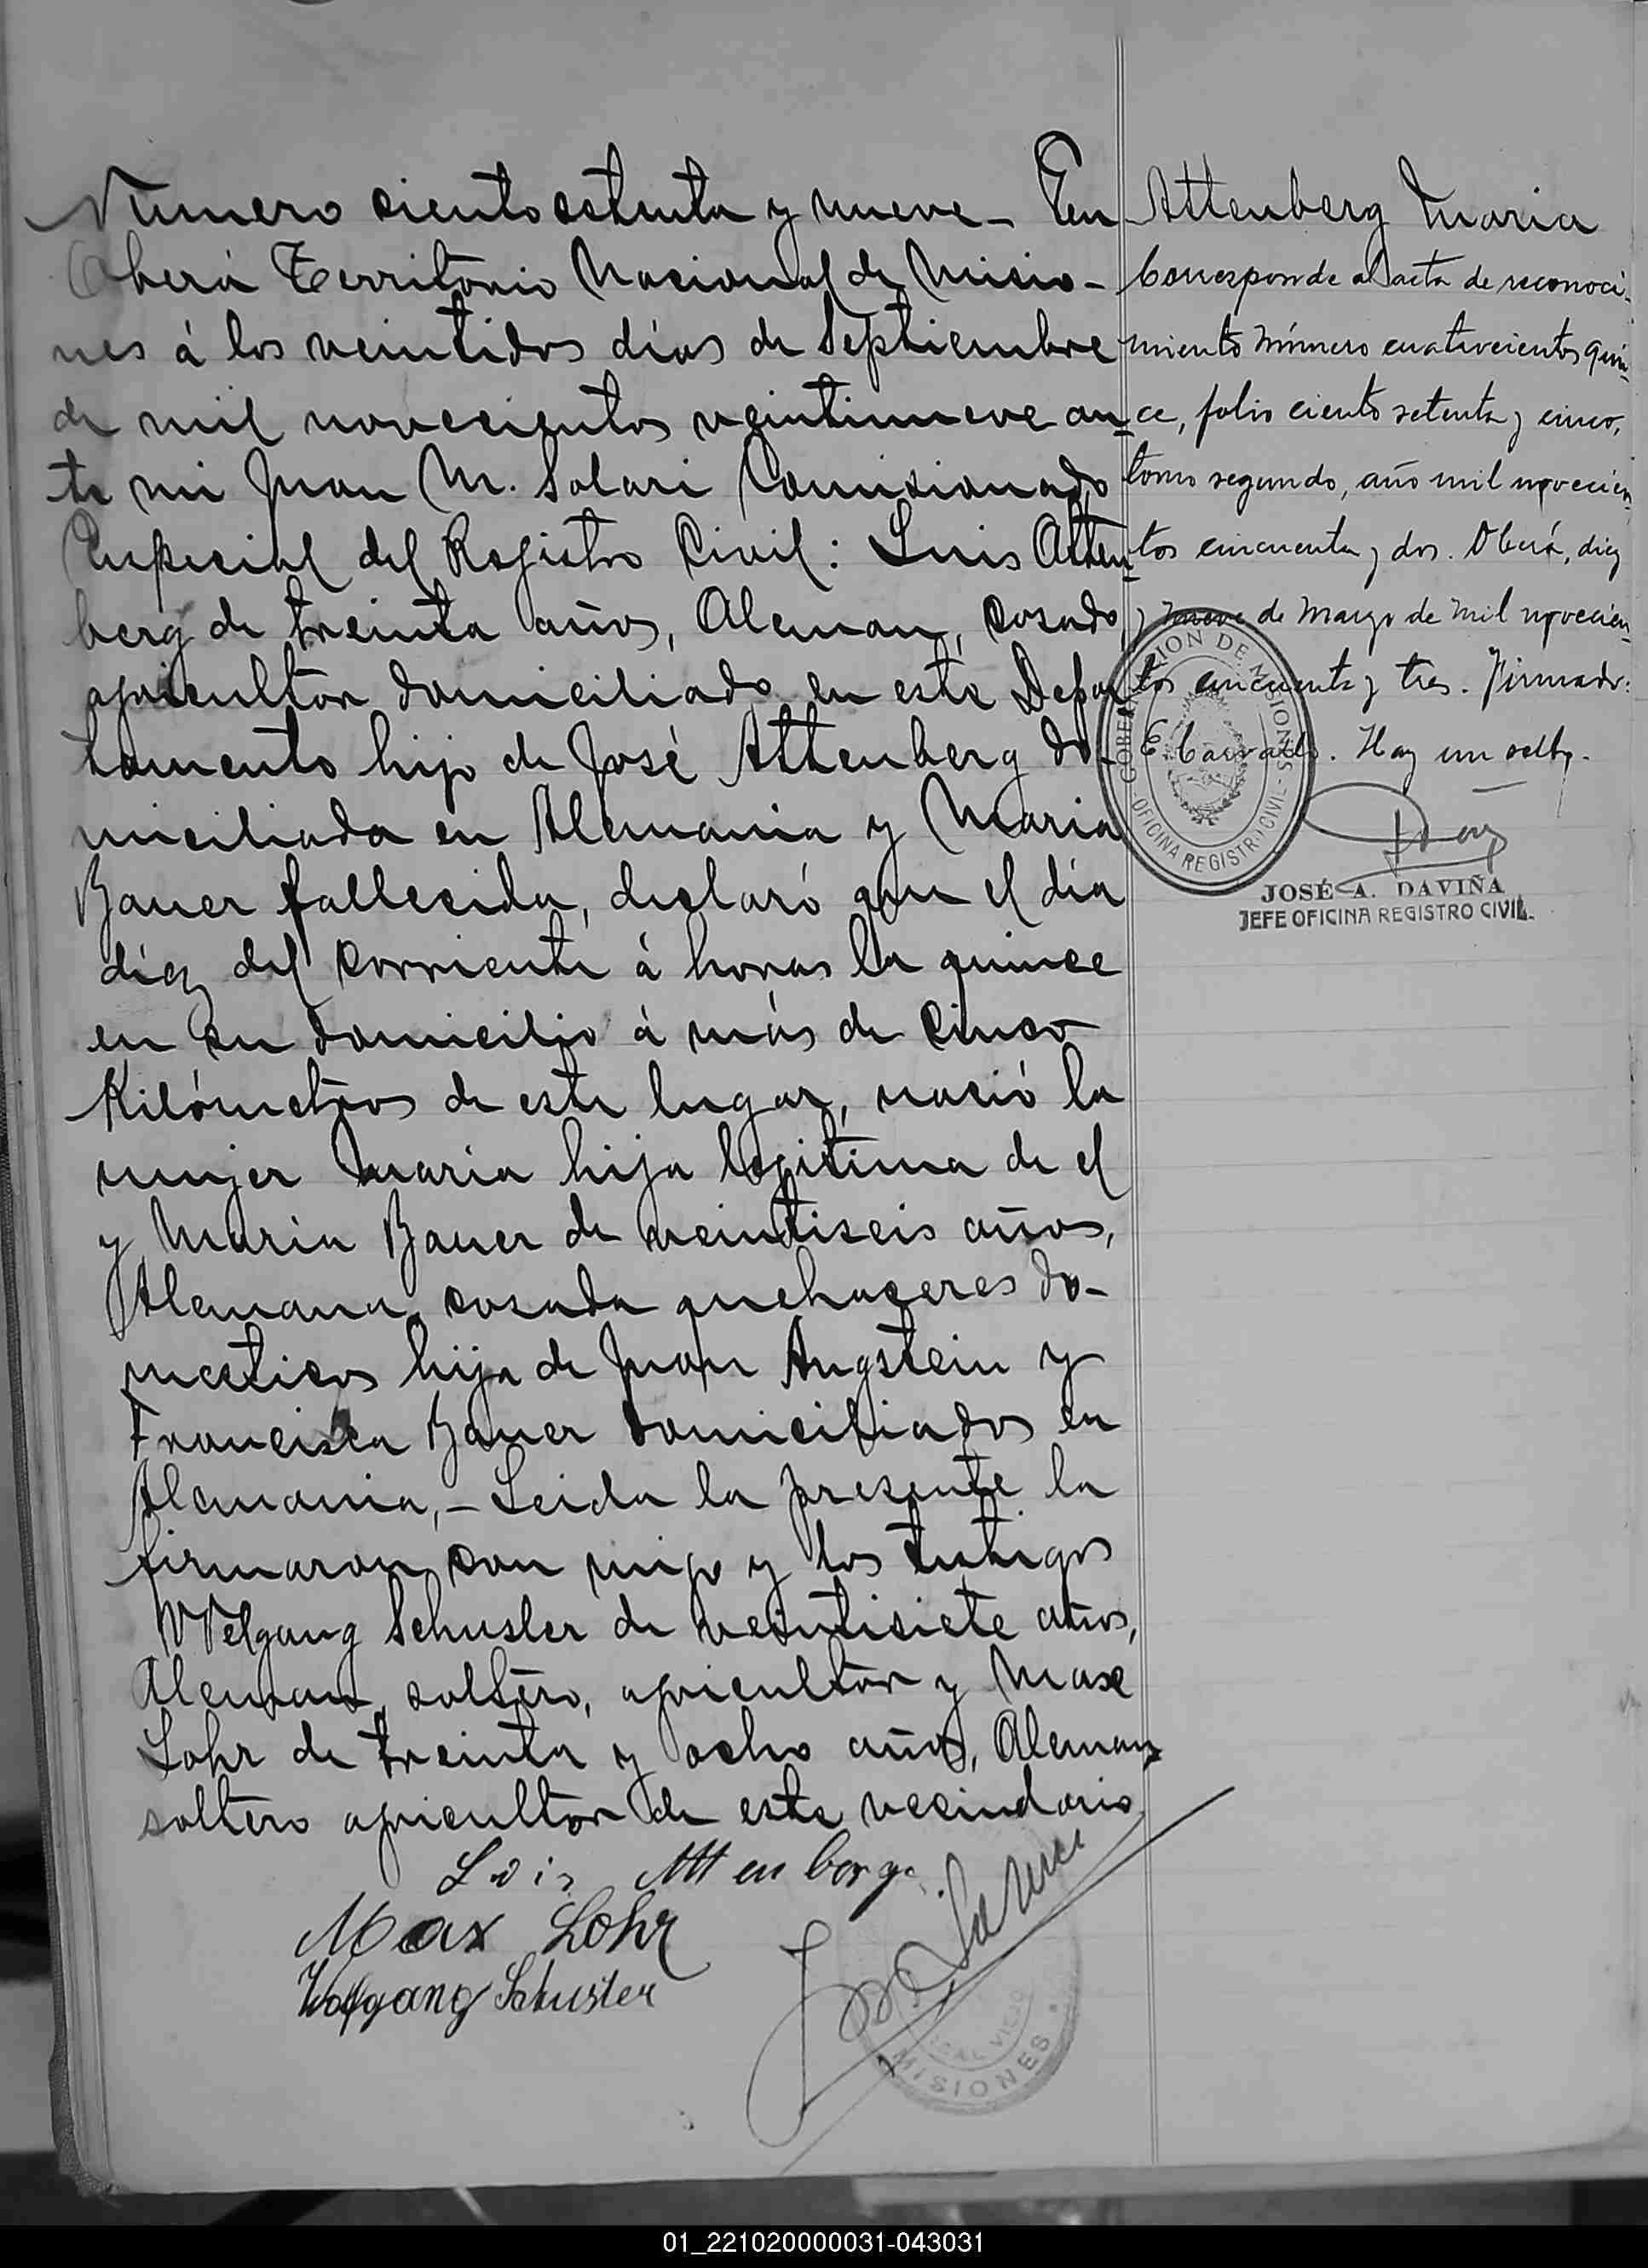 Número ciento setenta y nueve - En
Oberá Territorio Nacional de Misio-
nes á los veintidos días de Septiembre
de mil novecientos veintinueve an-
te mi Juan M. Solari Comisionado
Especial del Registro Civil: Luis Atten-
berg de treinta años, Aleman, casado,
agricultor domiciliado en este Depar-
tamento hijo de José Attenberg do-
miciliada en Alemania y Maria
Bauer fallecida, declaró que el día
diez del corriente á horas la quince
en su domicilio á más de cinco
Kilómetros de este lugar, nació la
mujer Maria hija legitima de el
y Maria Bauer de veintiseis años,
Alemana, casada quehaceres do-
mesticos hija de Juan Augstein y
Francisca Bauer domiciliados en
Alemania,- Leida la presente la
firmaron con migo y los testigos
Wolgang Schusler de veintisiete años,
Aleman, soltero, agricultor y Max
Lohr de treinta y ocho años, Aleman
soltero agricultor de este vecindario
Lois Attenberg.
Max Lohr
Wolfgang Schuster
MISIONES
Attenberg Maria
Corresponde al acta de reconoci-
miento número cuatrocientos quin-
ce, folio ciento setenta y cinco,
tomo segundo, año mil novecien-
tos cincuenta y dos. Oberá, diez
y nueve de Marzo de mil novecien-
tos cincuenta y tres. Firmado:
Hay un sello.
GOBERNACION DE MISIONES
- OFICINA REGISTRO CIVIL -
JOSÉ A. DAVIÑA
JEFE OFICINA REGISTRO CIVIL
01_221020000031-043031